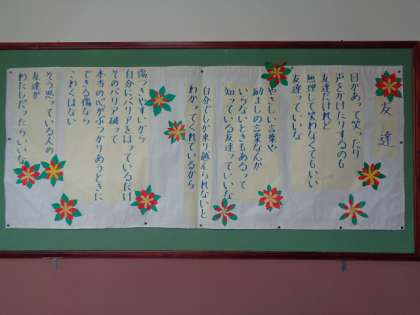 友達
目があって笑ったり
声をかけたりするのも
友達だけれど
無理して笑わなくてもいい
友達っていいな
やさしい言葉や
励ましの言葉なんか
いらないときもあるって
知っている友達っていいな
自分でしか乗り越えられないと
わかってくれているから
傷つきやすいから
自分にバリアをはっているだけ
そのバリア破って
本当の心がぶつかりあったときに
できる傷なら
こわくはない
そう思っている人の
友達が
わたしだったらいいな